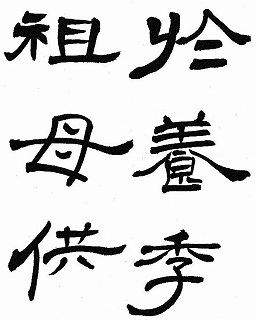 收養季
祖母供